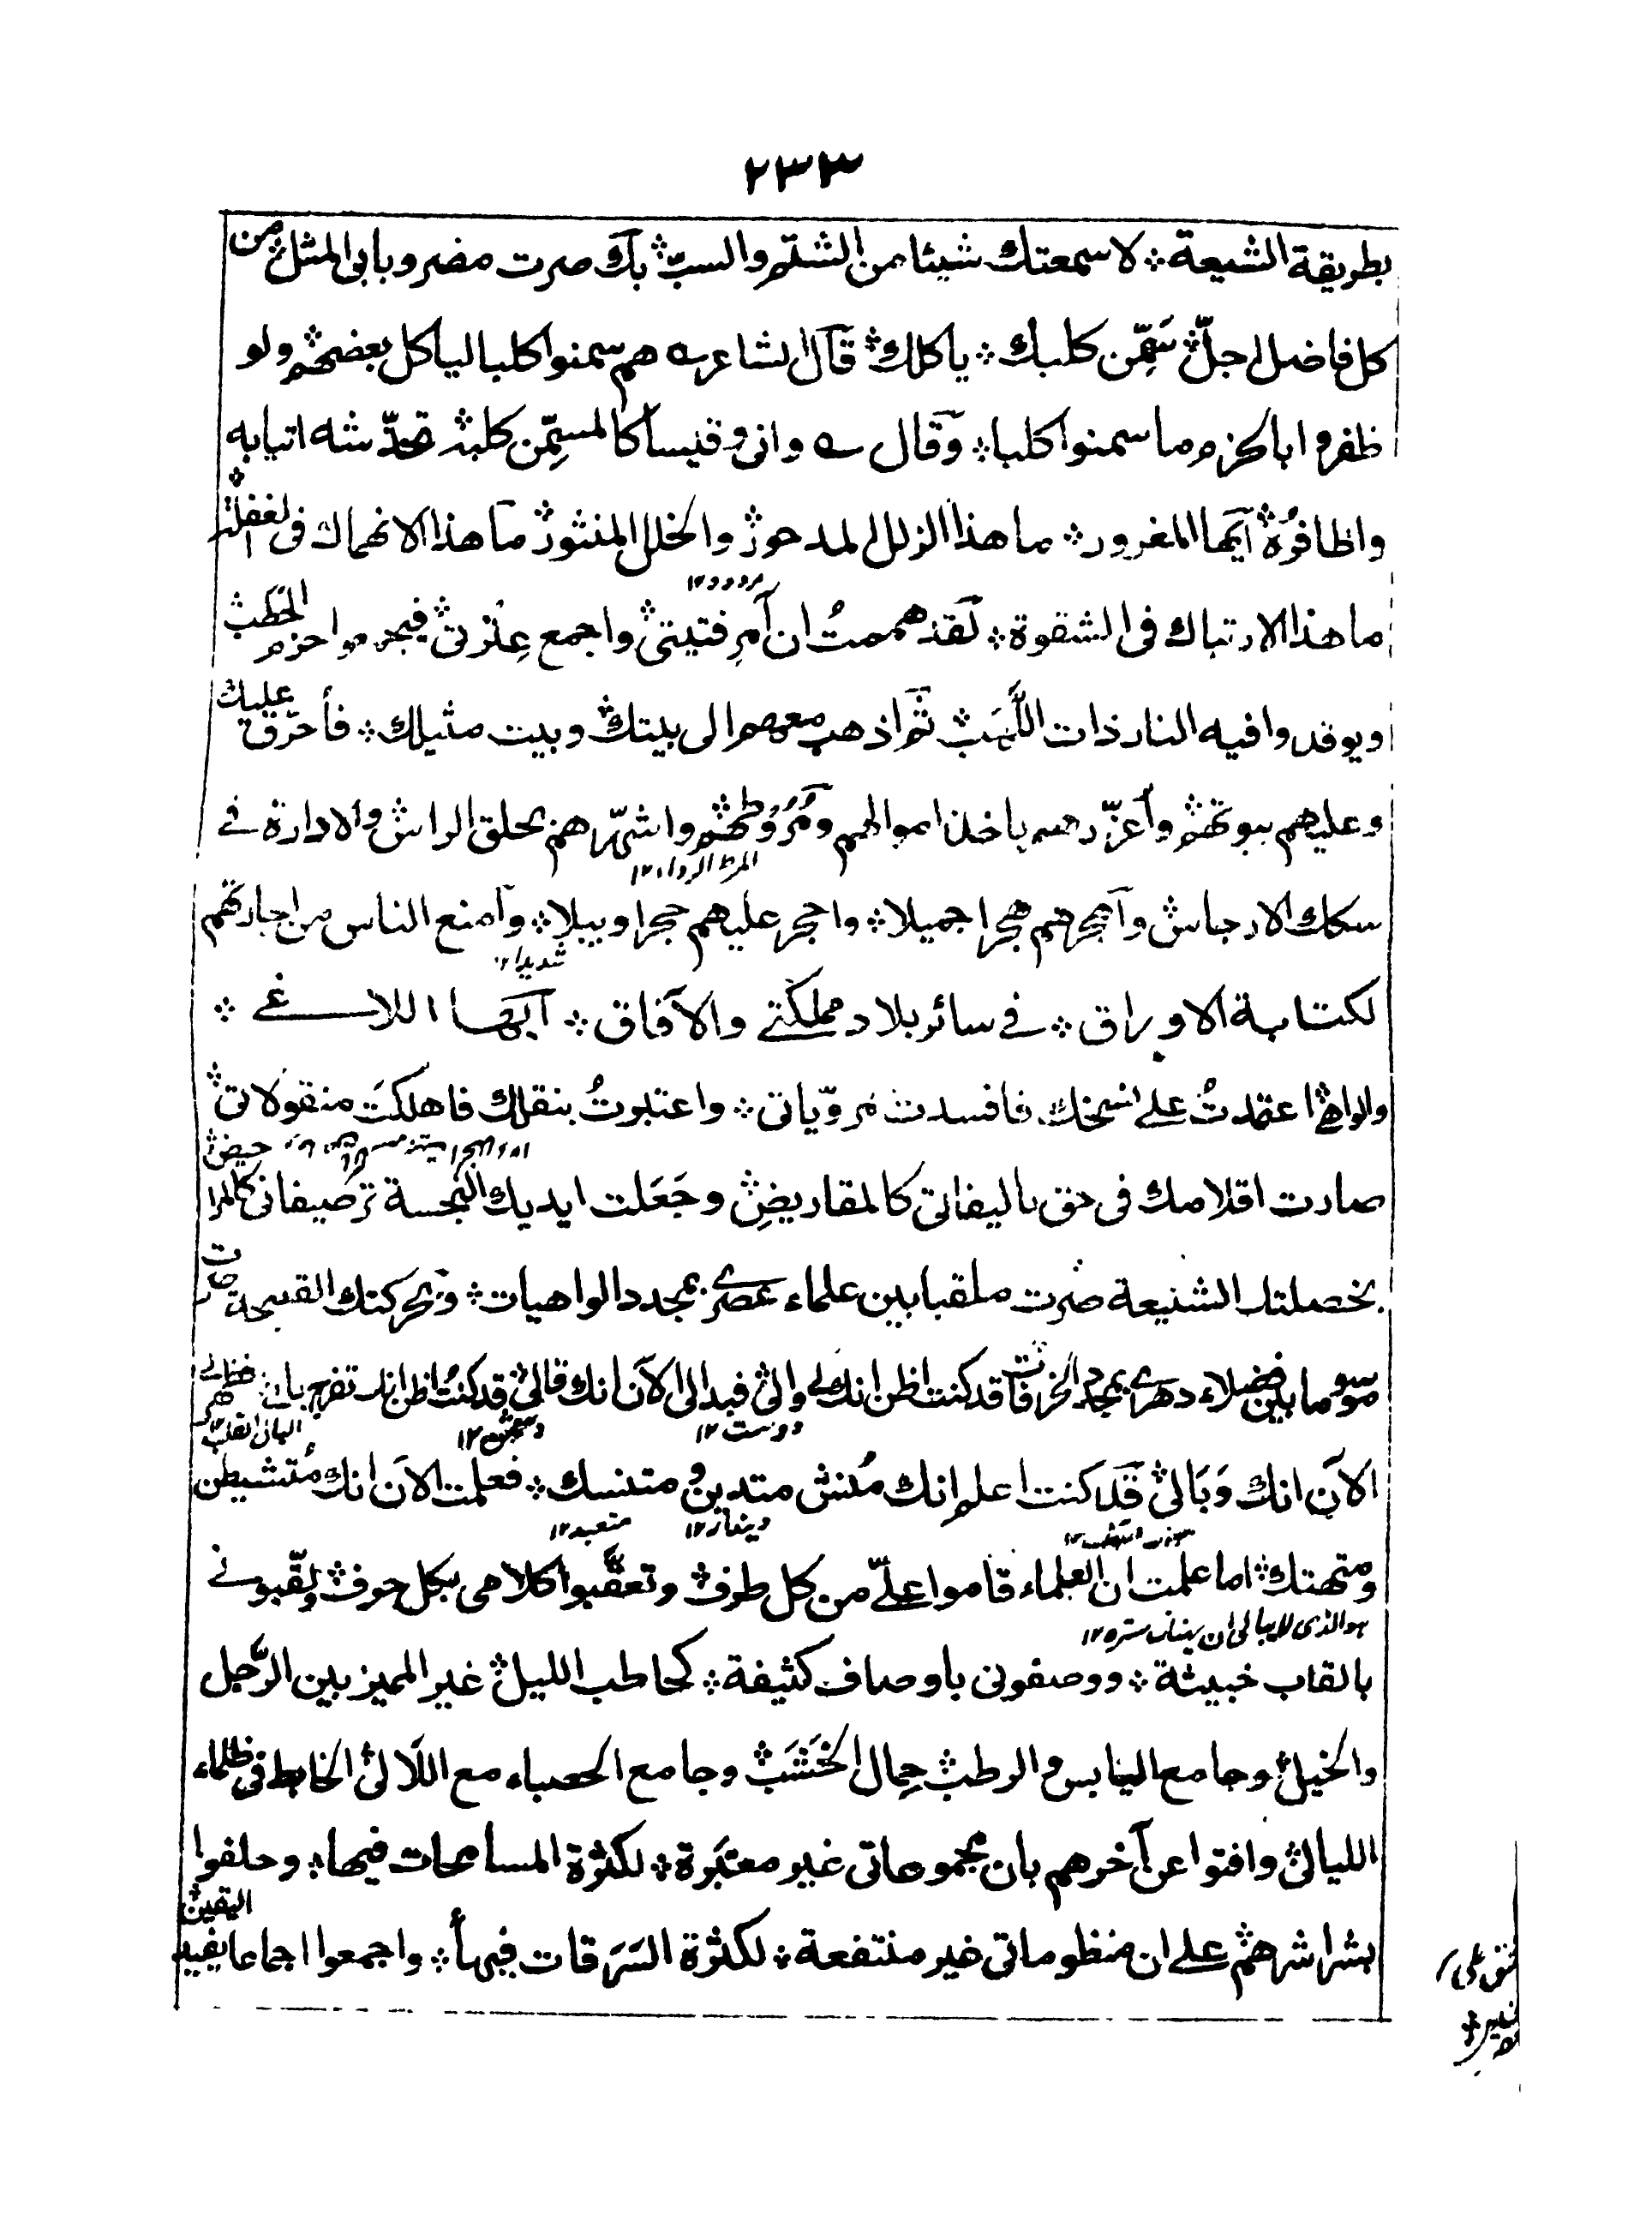 ٢٣٣
بطريقة الشيعة ۞ لاسمعتك شيئا من الشتم والسبّ ۞ بك صرت مضروبا بى المثل من
كل فاضل اجلّ ۞ سَمِّن كلبك ۞ ياكلك ۞ قال الشاعر ؎ هم سمنوا كلبا لياكل بعضهم ۞ ولو
ظفروا باكزم ما سمنوا كلبا ۞ وقال ؎ وانى وقيسا كالمسمِّن كلبه ۞ تخدّشه انيابه
واظافرُهُ ۞ ايها المغرور ۞ ما هذا الزلل المدحور ۞ والخلل المنثور ۞ ما هذا الانهماك فى الغفلة ۞
مردود ١٢
ما هذا الارتباك فى الشقوة ۞ لقد هممتُ ان آمر فتيتى ۞ واجمع عِترتى ۞ فيجمعوا حزم الحطب ۞
ويوقدوا فيه النار ذات اللَّهَب ۞ ثم اذهب معهم الى بيتك ۞ وبيت مثيلك ۞ فأحرّق عليك
وعليهم بيوتهم ۞ وأعزّرهم باخذ اموالهم ومُرُوطهم ۞ واشهّرهم بحلق الراس ۞ والادارة فے
المرط الرداء ١٢
سكك الارجاس ۞ وآهجرهم هجرا جميلا ۞ واحجر عليهم حجرا وبيلا ۞ وآمنع الناس من اجارتهم
شديدا ١٢
لكتابة الاوراق ۞ فے سائر بلاد مملكتے والآفاق ۞ ايها اللاغے ۞
والواهے ۞ اعتمدتُ علے نسخك فافسدت مروّياتى ۞ واعتبرتُ بنقلك فاهلكتَ منقولاتى ۞
صارت اقلامك فى حق تاليفاتى كالمقاريضِ ۞ وجَعَلت ايديك النجسة ترصيفاتى كالمراحيض ۞
بخصلتك الشنيعة صرت ملقبا بين علماء عصرے بمجدد الواهيات ۞ وبحركتك القبيحة صرت
موسوما بين فضلاء دهرے بمجدد الخرافات ۞ قد كنت اظن انك لے والى ۞ فبدا لى الآن انك قالى ۞ قد كنتُ اظن انك تفرج بالى ۞ فظهر لے
دوست ١٢
دشمن ١٢
البال القلب ١٢
الآن انك وَبَالى ۞ قد كنت اعلم انك مُنش متدين ومتنسك ۞ فعلمت الآن انك مُتشيطن
ديندار ١٢
متعبد ١٢
ومتهتك ۞ اما علمت ان العلماء قاموا علےّ من كل طرف ۞ وتعقَّبوا كلامى بكل حرف ۞ ولقّبونے
هو الذى لا يبالى ان يهتك ستره ١٢
بالقاب خبيثة ۞ ووصفونى باوصاف كثيفة ۞ كحاطب الليل ۞ غير المميز بين الرَّجِل
والخيل ۞ وجامع اليابس والرطب ۞ حمال الخَشَب ۞ وجامع الحصباء مع اللآلى ۞ الخابط فى ظلماء
الليالى ۞ وافتوا عن آخرهم بان مجموعاتى غير معتبَرة ۞ لكثرة المسامحات فيها ۞ وحلفوا
بشراشرهم ۞ علے ان منظوماتى غير منتفعة ۞ لكثرة السَرَقات فيها ۞ واجمعوا اجماعا يفيد اليقين ۞